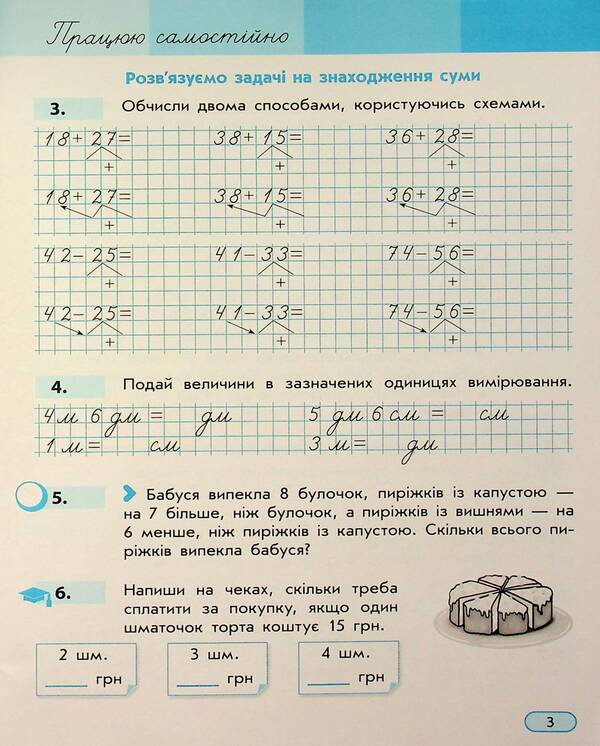 Працюю самостійно
Розв'язуємо задачі на знаходження суми
3. Обчисли двома способами, користуючись схемами.
18+27= 38+15= 36+28=
+ + +
18+27= 38+15= 36+28=
+ + +
42-25= 41-33= 74-56=
+ + +
42-25= 41-33= 74-56=
+ + +
4. Подай величини в зазначених одиницях вимірювання.
4 м 6 дм = дм 5 дм 6 см = см
1 м = см 3 м = дм
5. Бабуся випекла 8 булочок, пиріжків із капустою —
на 7 більше, ніж булочок, а пиріжків із вишнями — на
6 менше, ніж пиріжків із капустою. Скільки всього пи-
ріжків випекла бабуся?
6. Напиши на чеках, скільки треба
сплатити за покупку, якщо один
шматочок торта коштує 15 грн.
2 шм. 3 шм. 4 шм.
____ грн ____ грн ____ грн
3